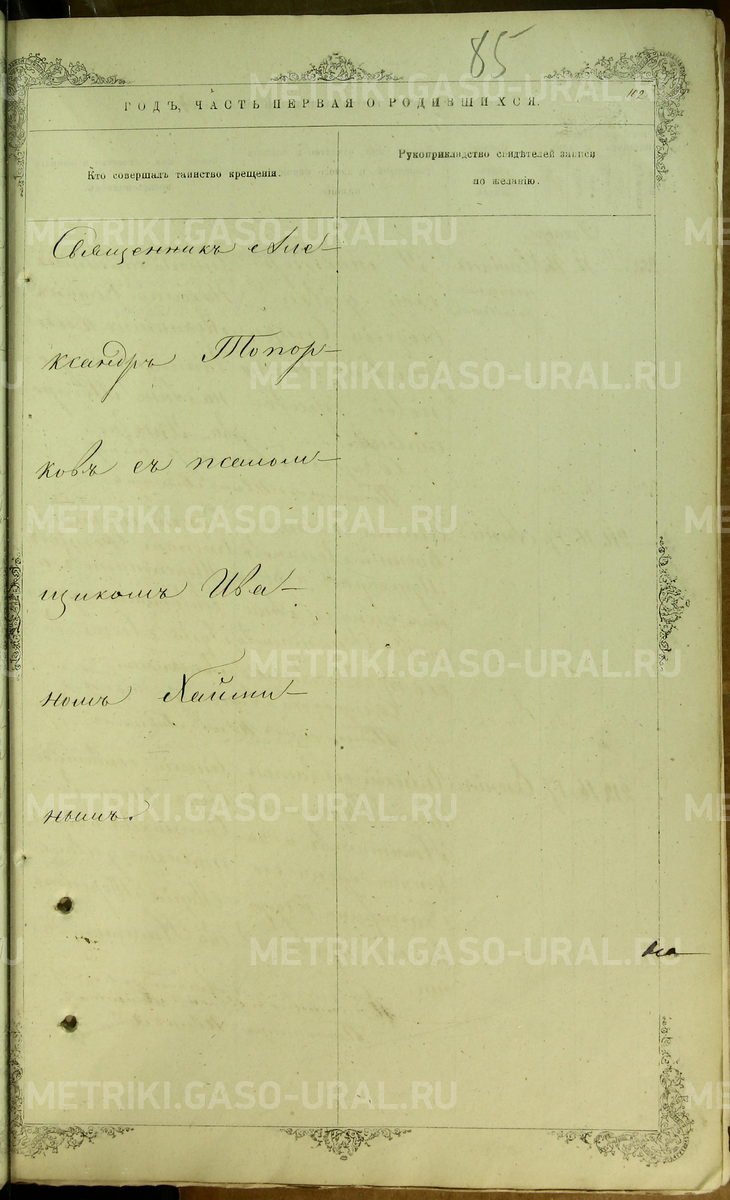 85
102
ГОДЪ, ЧАСТЬ ПЕРВАЯ О РОДИВШИХСЯ.
Кто совершалъ таинство крещенія.
Рукоприкладство свидѣтелей записи
по желанію.
Священникъ Але-
ксандръ Топор-
ковъ съ псалом-
щикомъ Ива-
номъ Хайми-
нымъ.
METRIKI.GASO-URAL.RU